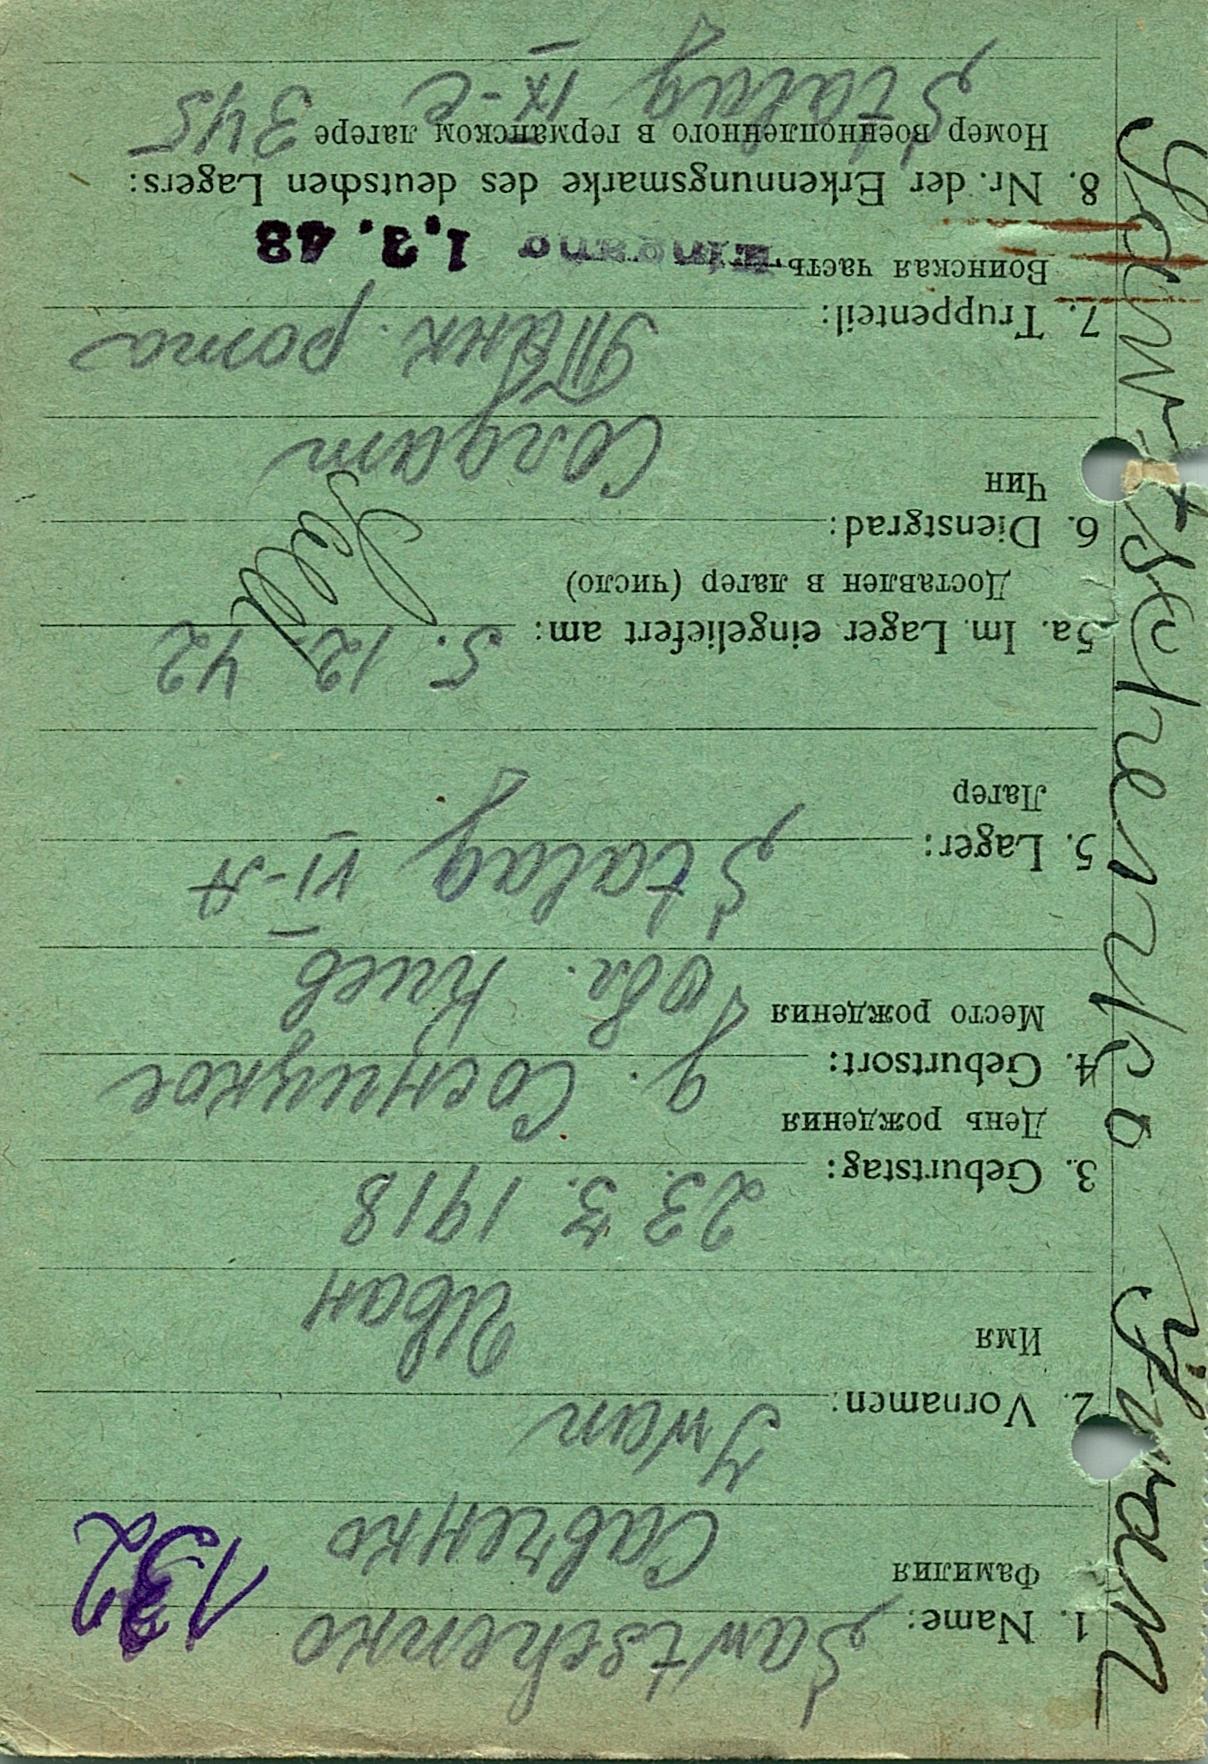 Sawtschenko Iwan
132
1. Name: Sawtschenko
Фамилия Савченко
2. Vornamen: Iwan
Имя Иван
3. Geburtstag: 23. 3. 1918
День рождения
4. Geburtsort: д. Соснцукое
Место рождения обл. Киев
5. Lager: Stalag VI-A
Лагер
5a. Im Lager eingeliefert am: 5. 12 42
Доставлен в лагер (число)
6. Dienstgrad:
Чин Солдат
7. Truppenteil: Танк. рота
Воинская часть Eingang 1.3.43
8. Nr. der Erkennungsmarke des deutschen Lagers:
Номер военнопленного в германском лагере 345
Stalag IX-C